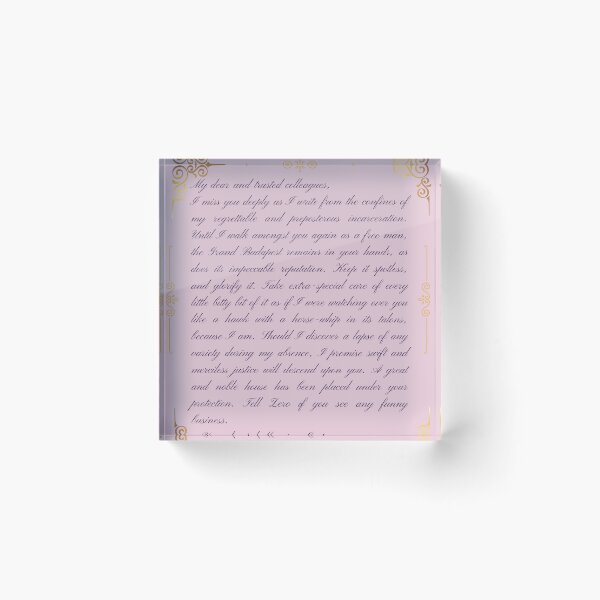 My dear and trusted colleagues,
I miss you deeply as I write from the confines of
my regrettable and preposterous incarceration.
Until I walk amongst you again as a free man,
the Grand Budapest remains in your hands, as
does its impeccable reputation. Keep it spotless,
and glorify it. Take extra-special care of every
little bitty bit of it as if I were watching over you
like a hawk with a horse-whip in its talons,
because I am. Should I discover a lapse of any
variety during my absence, I promise swift and
merciless justice will descend upon you. A great
and noble house has been placed under your
protection. Tell Zero if you see any funny
business.